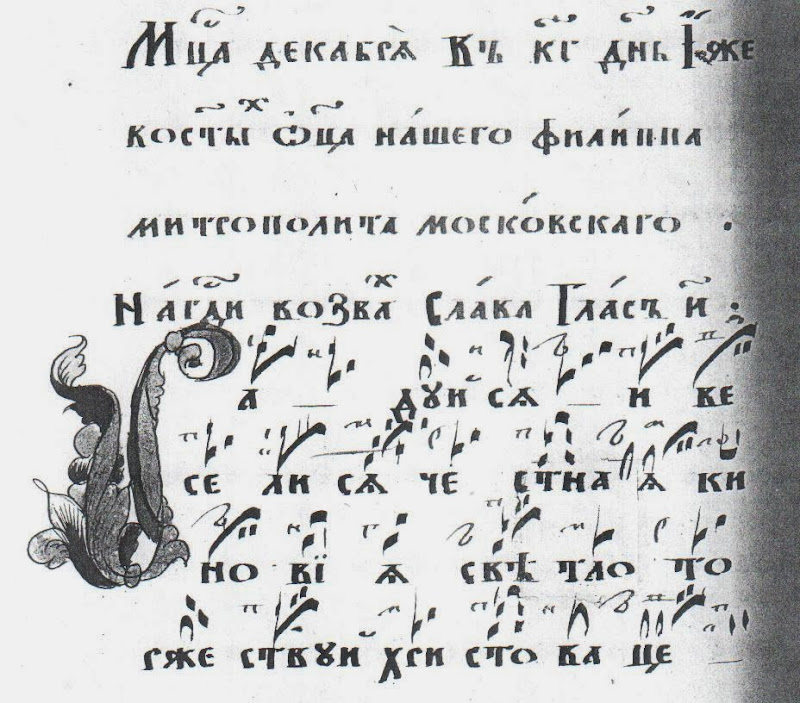 Мц҃а декабрѧ въ к҃г дн҃ь И҆́же
во ст҃ыхъ ѻ҆ц҃а на́шего фили́ппа
митрополита моско́вскаго .
На́ гд҇и возвах Сла́ва Гла́съ и҃ .
а дꙋйсѧ и ве
се ли сѧ че стна ѧ ки
но вї ѧ свѣ тло то
рже ствꙋй хри сто ва це